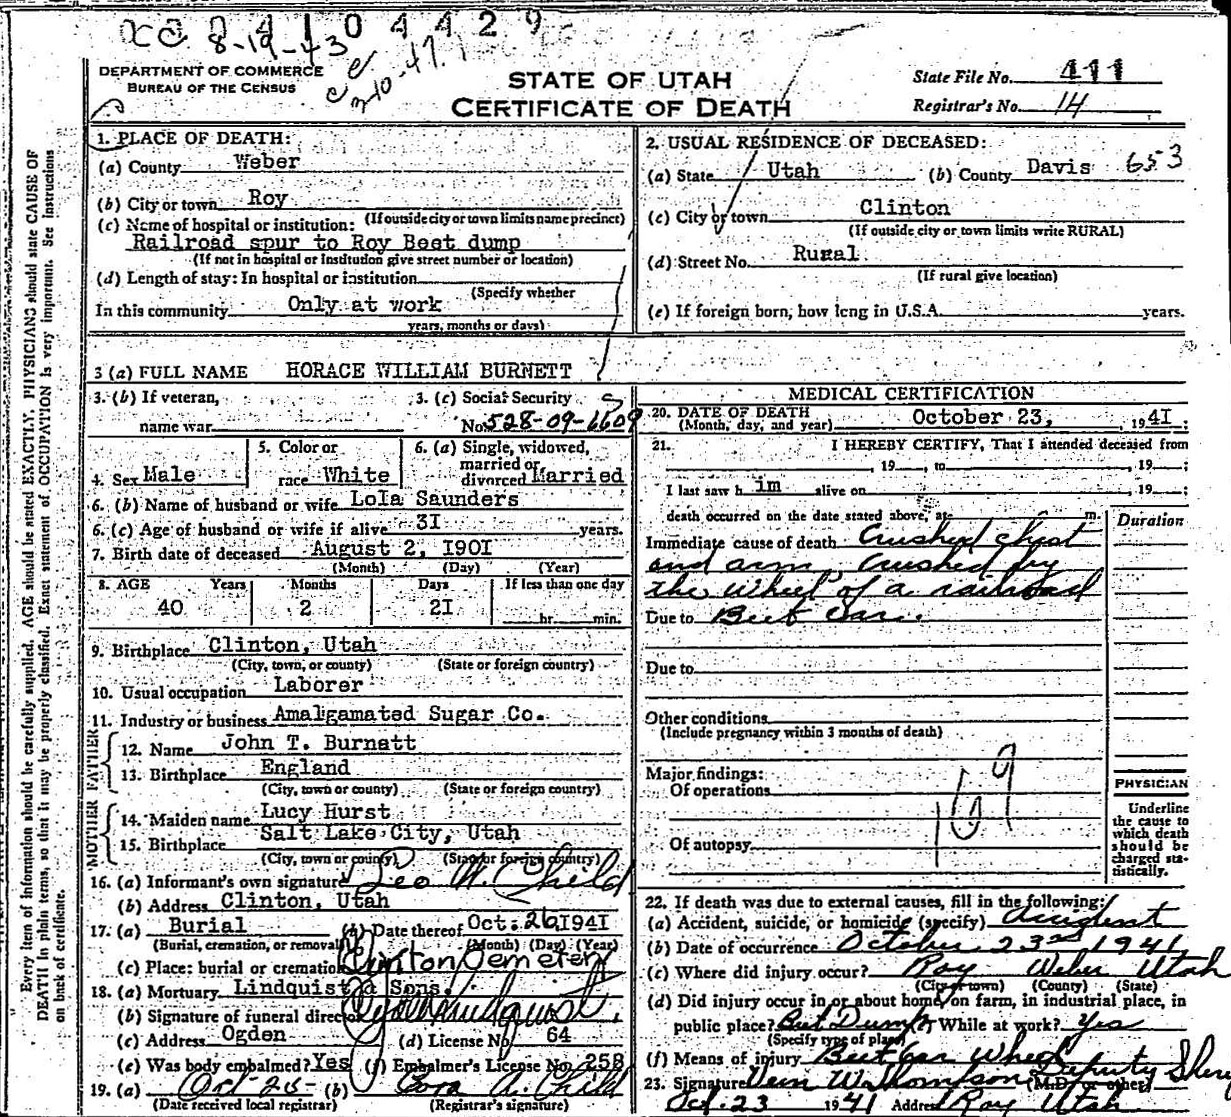 8-19-43
10-47
DEPARTMENT OF COMMERCE
BUREAU OF THE CENSUS
STATE OF UTAH
CERTIFICATE OF DEATH
State File No. 411
Registrar's No. 14
Every item of information should be carefully supplied. AGE should be stated EXACTLY. PHYSICIANS should state CAUSE OF
DEATH in plain terms, so that it may be properly classified. Exact statement of OCCUPATION is very important. See instructions
on back of certificate.
1. PLACE OF DEATH:
(a) County Weber
(b) City or town Roy
(If outside city or town limits name precinct)
(c) Name of hospital or institution:
Railroad spur to Roy Beet dump
(If not in hospital or institution give street number or location)
(d) Length of stay: In hospital or institution
(Specify whether
In this community Only at work
years, months or days)
2. USUAL RESIDENCE OF DECEASED:
(a) State Utah (b) County Davis 653
(c) City or town Clinton
(If outside city or town limits write RURAL)
(d) Street No. Rural
(If rural give location)
(e) If foreign born, how long in U.S.A. years.
3 (a) FULL NAME HORACE WILLIAM BURNETT
3. (b) If veteran,
name war
3. (c) Social Security
No. 528-09-6609
4. Sex Male
5. Color or
race White
6. (a) Single, widowed,
married or
divorced Married
6. (b) Name of husband or wife Lola Saunders
6. (c) Age of husband or wife if alive 31 years.
7. Birth date of deceased August 2, 1901
(Month) (Day) (Year)
8. AGE Years Months Days If less than one day
40 2 21 hr. min.
9. Birthplace Clinton, Utah
(City, town, or county) (State or foreign country)
10. Usual occupation Laborer
11. Industry or business Amalgamated Sugar Co.
FATHER
12. Name John T. Burnett
13. Birthplace England
(City, town or county) (State or foreign country)
MOTHER
14. Maiden name Lucy Hurst
15. Birthplace Salt Lake City, Utah
(City, town or county) (State or foreign country)
16. (a) Informant's own signature Leo W. Child
(b) Address Clinton, Utah
17. (a) Burial (b) Date thereof Oct. 26, 1941
(Burial, cremation, or removal) (Month) (Day) (Year)
(c) Place: burial or cremation Clinton Cemetery
18. (a) Mortuary Lindquist & Sons.
(b) Signature of funeral director Lindquist
(c) Address Ogden (d) License No. 64
(e) Was body embalmed? Yes (f) Embalmer's License No. 258
19. (a) Oct-25- (b) Ezra A. Child
(Date received local registrar) (Registrar's signature)
MEDICAL CERTIFICATION
20. DATE OF DEATH October 23, 1941
(Month, day, and year)
21. I HEREBY CERTIFY, That I attended deceased from
, 19 , to , 19 ;
I last saw him alive on , 19 ;
death occurred on the date stated above, at m.
Duration
Immediate cause of death Crushed chest
and arm, Crushed by
the wheel of a railroad
Due to Beet Car.
Due to
Other conditions
(Include pregnancy within 3 months of death)
Major findings:
Of operations
169
Of autopsy
PHYSICIAN
Underline
the cause to
which death
should be
charged sta-
tistically.
22. If death was due to external causes, fill in the following:
(a) Accident, suicide, or homicide (specify) Accident
(b) Date of occurrence October 23rd 1941
(c) Where did injury occur? Roy Weber Utah
(City or town) (County) (State)
(d) Did injury occur in or about home, on farm, in industrial place, in
public place? Beet Dump While at work? Yes
(Specify type of place)
(f) Means of injury Beet Car Wheel
23. Signature Vern W. Thompson Deputy Sher (M.D. or other)
Oct. 23 1941 Address Roy Utah